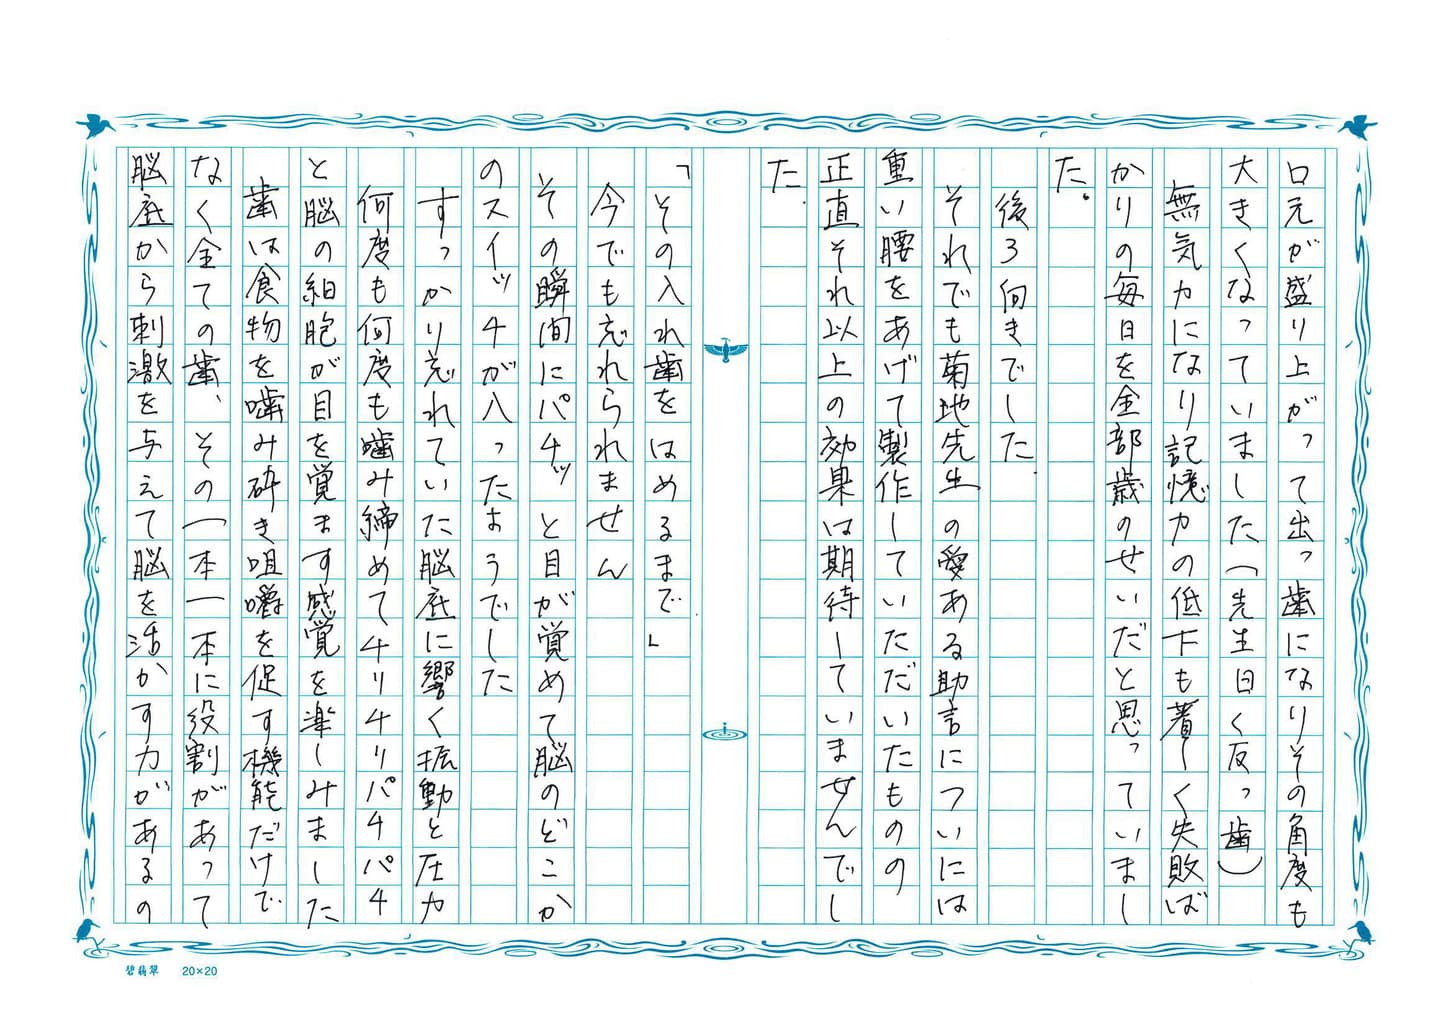 口元が盛り上がって出っ歯になりその角度も
大きくなっていました(先生曰く反っ歯)
無気力になり記憶力の低下も著しく失敗ば
かりの毎日を全部歳のせいだと思っていまし
た。
後ろ向きでした。
それでも菊地先生の愛ある助言についには
重い腰をあげて製作していただいたものの
正直それ以上の効果は期待していませんでし
た。
「その入れ歯をはめるまで」
今でも忘れられません
その瞬間にパチッと目が覚めて脳のどこか
のスイッチが入ったようでした
すっかり忘れていた脳底に響く振動と圧力
何度も何度も噛み締めてチリチリパチパチ
と脳の細胞が目を覚ます感覚を楽しみました
歯は食物を噛み砕き咀嚼を促す機能だけで
なく全ての歯、その一本一本に役割があって
脳底から刺激を与えて脳を活かす力があるの
碧翡翠 20×20